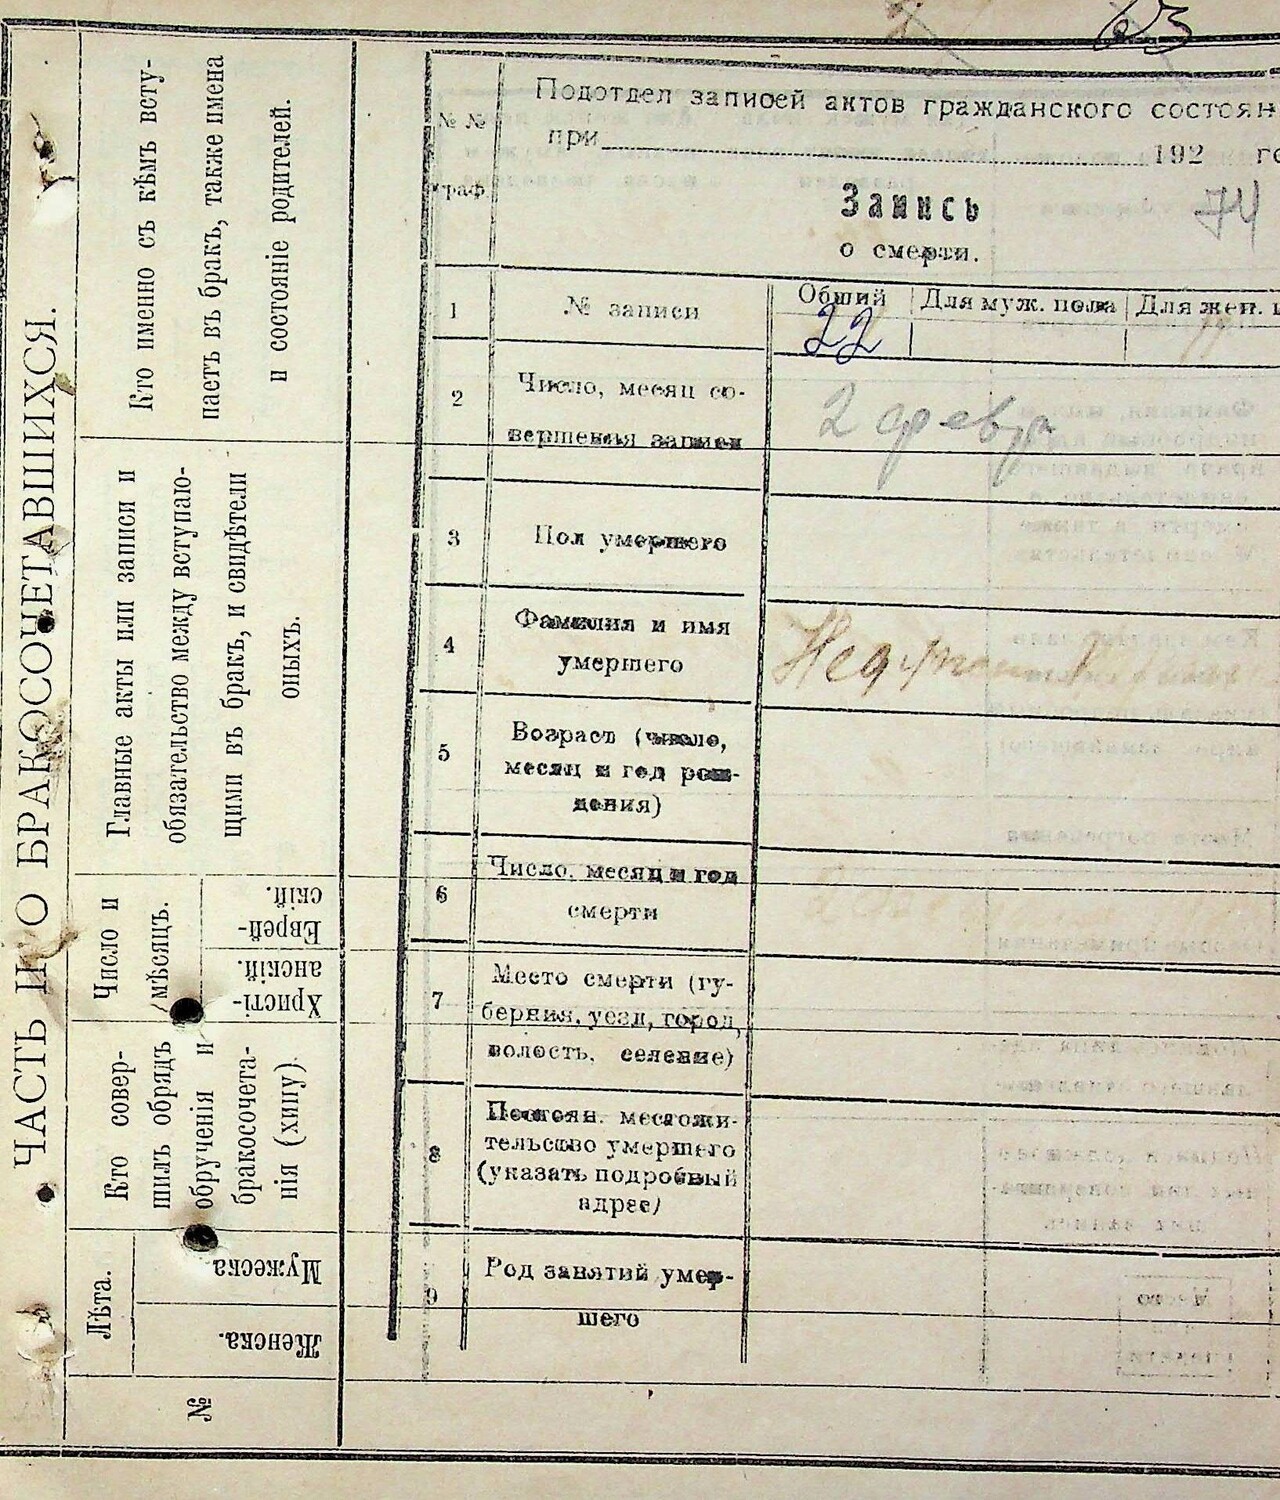 63
ЧАСТЬ II О БРАКОСОЧЕТАВШИХСЯ.
Кто именно съ кѣмъ всту-
паетъ въ бракъ, также имена
и состояніе родителей.
Главные акты или записи и
обязательство между вступаю-
щими въ бракъ, и свидѣтели
оныхъ.
Число и
мѣсяцъ.
Еврей-
скій.
Христі-
анскій.
Кто совер-
шилъ обрядъ
обрученія и
бракосочета-
нія (хипу).
Лѣта.
Мужеска.
Женска.
№
№ №
граф.
Подотдел записей актов гражданского состоян
при 192 го
Запись
74
о смерти.
1
№ записи
Общий
Для муж. пола
Для жен. п
22
2
Число, месяц со-
вершения записи
2 февр
3
Пол умершего
4
Фамилия и имя
умершего
5
Возраст (число,
месяц и год рож-
дения)
6
Число, месяц и год
смерти
7
Место смерти (гу-
берния, уезд, город,
волость, селение)
8
Постоян. местожи-
тельство умершего
(указать подробный
адрес)
9
Род занятий умер-
шего